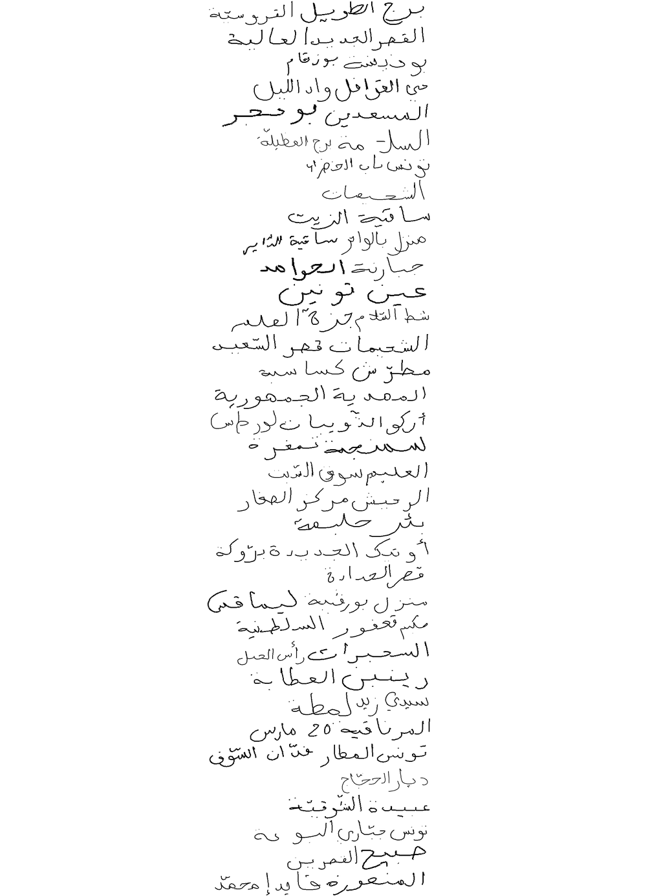 برج الطويل التروستة
القصر الجديد العالية
بوديسة بوزقام
حي القوافل واد الليل
المسعدين بوحجر
السلامة برج العطيلة
تونس باب الخضراء
الشحيمات
ساقية الزيت
منزل بالوا ساقية الدّاير
جبارنة الحوامد
عين تونين
شط السّلام حزة العلمة
الشحيمات قصر السّعيد
مطرش كساسبة
المهدية الجمهورية
أركو الذّويبات لورداس
سمنجة تمغزة
العليم سوق السّبت
الرخيش مركز الصغار
بئر حليمة
أوتيك الجديدة بزوكة
قصر الحدادة
منزل بورقيبة ليماقس
مكثر قعفور السلطنية
السعيرات رأس الجبل
رينين العطابة
سيدي زيد لمطة
المرناقية 20 مارس
تونس المطار فدّان السّوق
ديار الحجّاج
عبيدة الشّرقيّة
تونس جبّاري
صبيح القصرين
المنصورة قايد إمحمّد